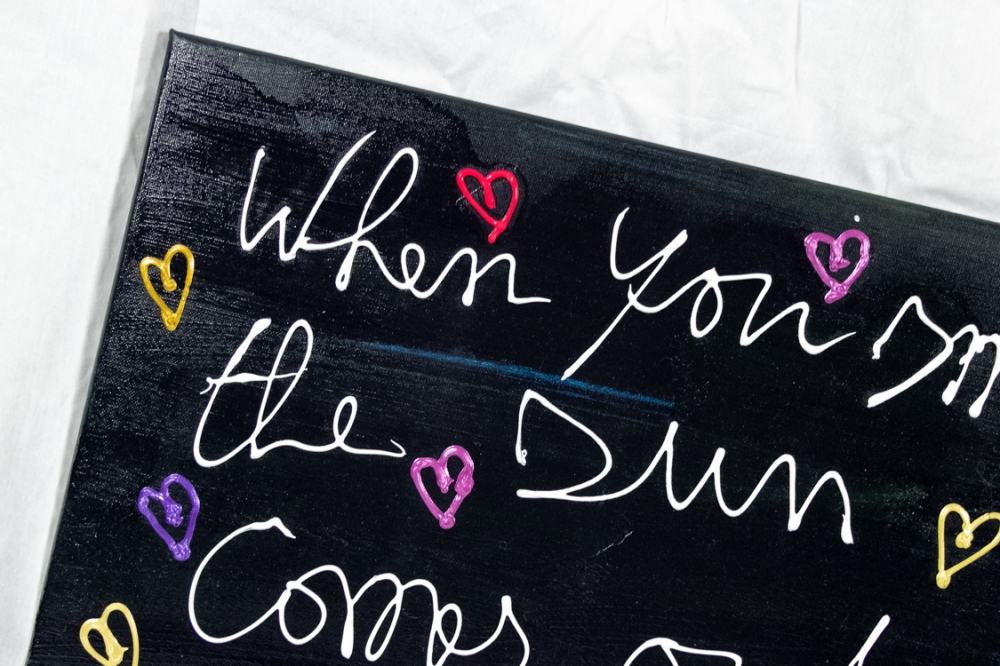 When You sm
the Sun
Comes o